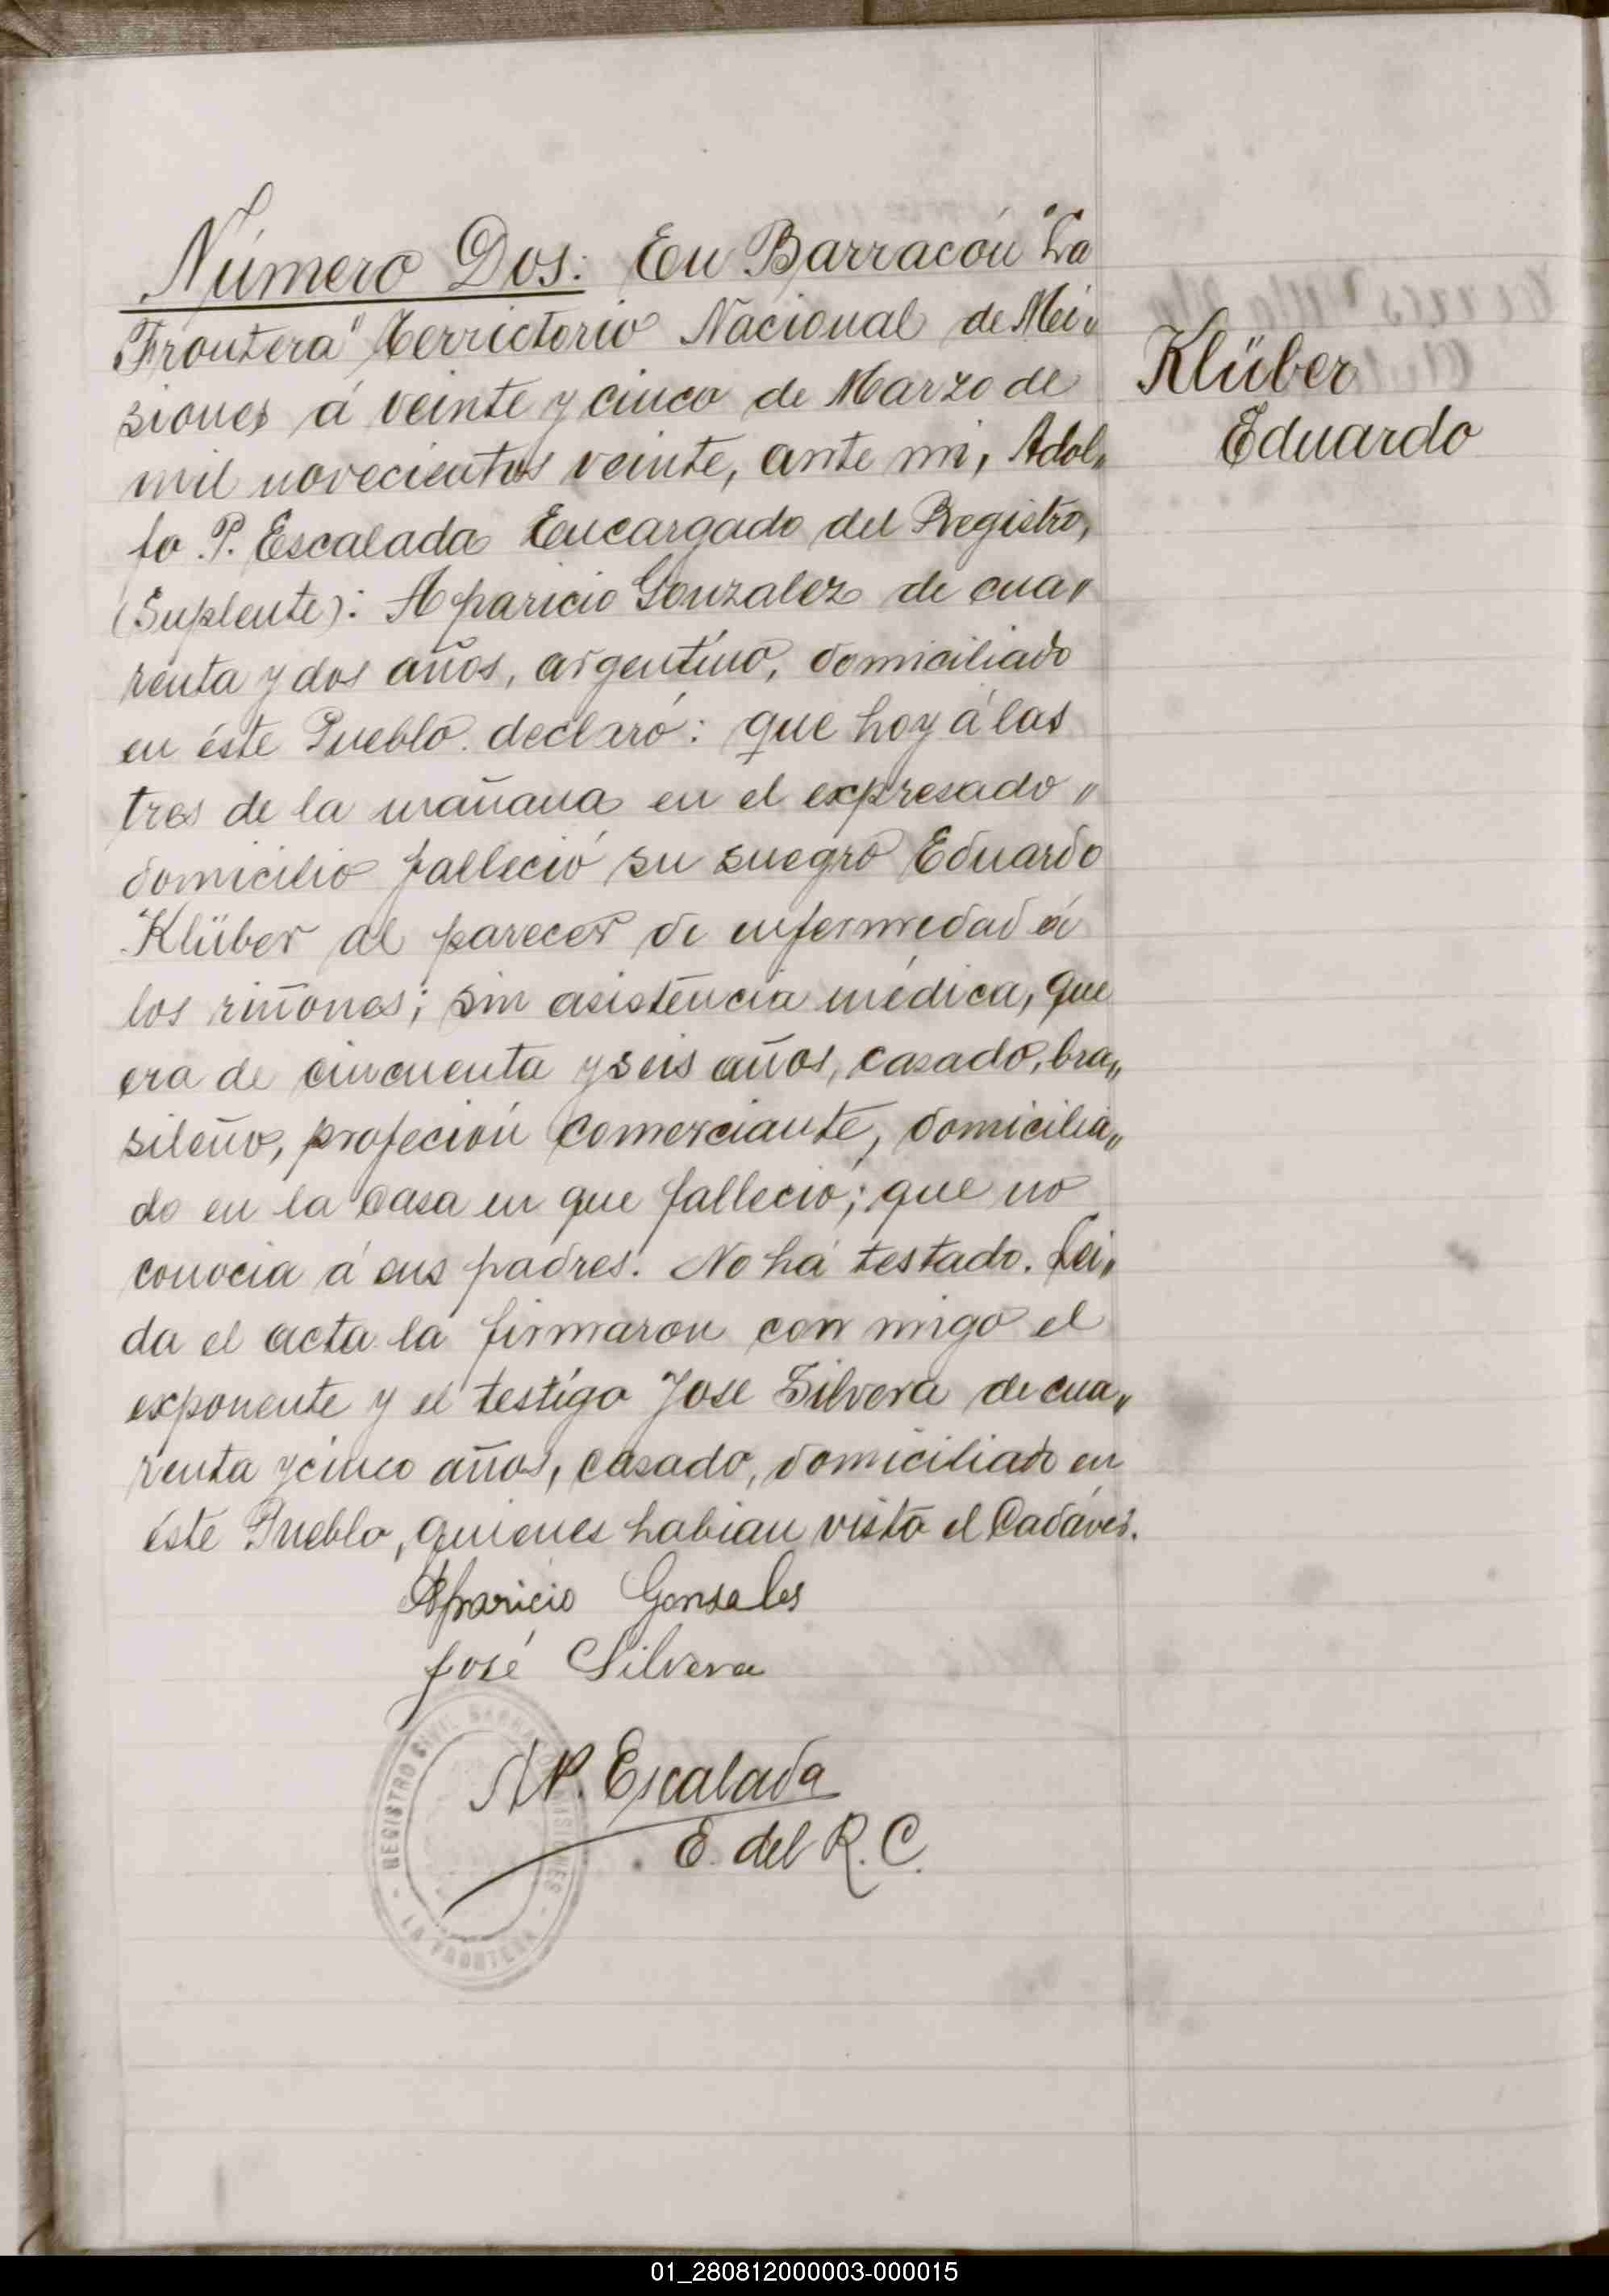 Número Dos: En Barracón "La
Frontera" Territorio Nacional de Mi„
siones á veinte y cinco de Marzo de
mil novecientos veinte, ante mi, Adol„
fo P. Escalada Encargado del Registro,
(Suplente): Aparicio Gonzalez de cua„
renta y dos años, argentino, domiciliado
en éste Pueblo declaró: que hoy á las
tres de la mañana en el expresado „
domicilio falleció su suegro Eduardo
Klüber al parecer de enfermedad á
los riñones; sin asistencia médica, que
era de cincuenta y seis años, casado, bra„
sileño, profeción comerciante, domicilia„
do en la Casa en que falleció; que no
conocia á sus padres. No há testado. Lei„
da el acta la firmaron con migo el
exponente y el testigo Jose Silvera de cua„
renta y cinco años, casado, domiciliado en
éste Pueblo, quienes habian visto el Cadáver.
Klüber
Eduardo
Aparicio Gonsales
José Silvera
A P. Escalada
E. del R. C.
REGISTRO CIVIL BARRA MISIONES
LA FRONTERA
01_280812000003-000015